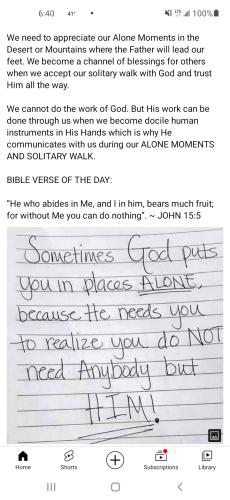 6:40 41° • LTE 100%
We need to appreciate our Alone Moments in the
Desert or Mountains where the Father will lead our
feet. We become a channel of blessings for others
when we accept our solitary walk with God and trust
Him all the way.
We cannot do the work of God. But His work can be
done through us when we become docile human
instruments in His Hands which is why He
communicates with us during our ALONE MOMENTS
AND SOLITARY WALK.
BIBLE VERSE OF THE DAY:
"He who abides in Me, and I in him, bears much fruit;
for without Me you can do nothing". ~ JOHN 15:5
Sometimes God puts
you in places ALONE,
because He needs you
to realize you do NOT
need Anybody but
HIM!
Home Shorts Subscriptions Library